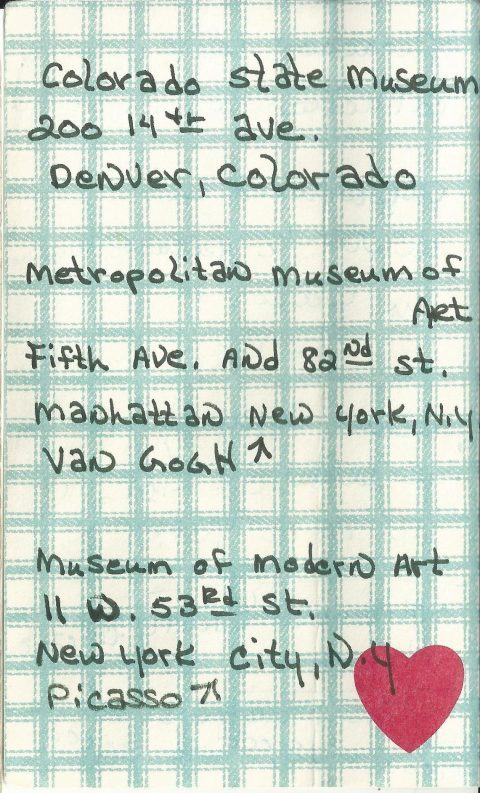 Colorado state museum
200 14th ave.
Denver, Colorado
Metropolitan museum of
Art
Fifth Ave. And 82nd st.
Manhattan New York, N.Y
Van GoGH ↗
Museum of modern Art
11 W. 53rd St.
New York City, N.Y
Picasso ↗